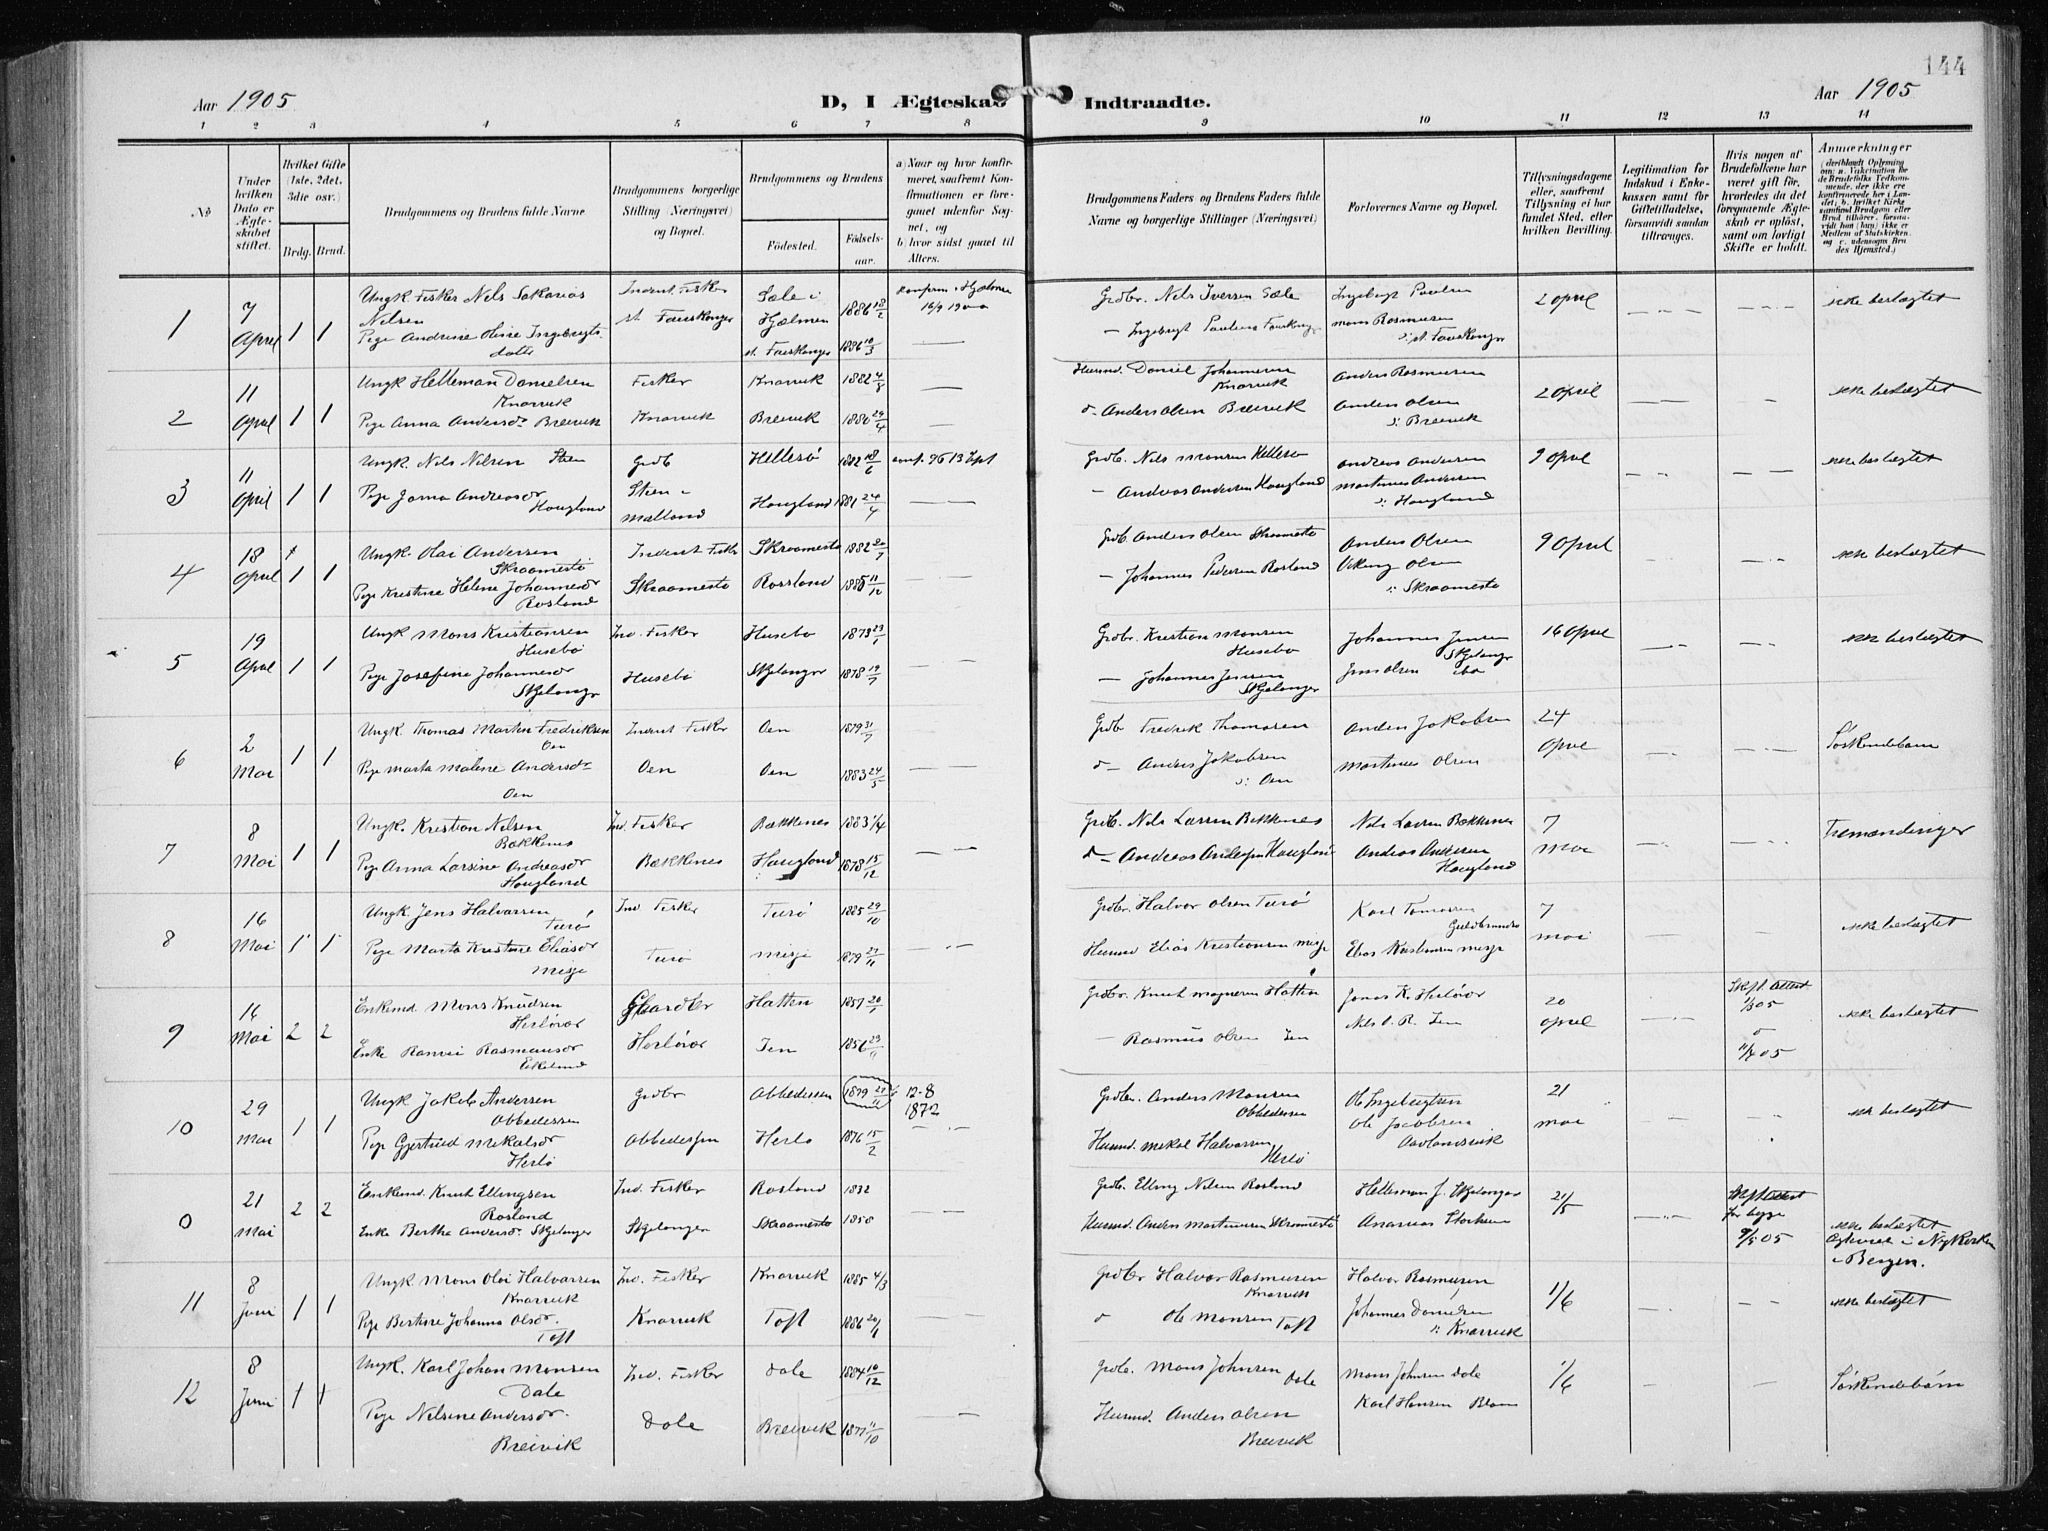 144
Aar 1905
D, I Ægteskab Indtraadte.
Aar 1905
1 2 3 4 5 6 7 8 9 10 11 12 13 14
No
Under hvilken Dato er Ægteskabet stiftet.
Hvilket Gifte (1ste, 2det, 3die osv.)
Brdg. Brud.
Brudgommens og Brudens fulde Navne
Brudgommens borgerlige Stilling (Næringsvei) og Bopæl.
Brudgommens og Brudens
Fødested.
Fødselsaar.
a) Naar og hvor konfirmeret, saafremt Konfirmationen er foregaaet udenfor Sognet, og
b) hvor sidst gaaet til Alters.
Brudgommens Faders og Brudens Faders fulde Navne og borgerlige Stillinger (Næringsvei)
Forlovernes Navne og Bopæl.
Tillysningsdagene eller, saafremt Tillysning ei har fundet Sted, efter hvilken Bevilling.
Legitimation for Indskud i Enkekassen samt for Giftetilladelse, forsaavidt saadan tiltrænges.
Hvis nogen af Brudefolkene har været gift før, hvorledes da det foregaaende Ægteskab er opløst, samt om lovligt Skifte er holdt.
Anmærkninger
1
7 April
1 1
Ungk. Fisker Nels Sakarias Nelsen
Pige Andrine Oline Ingebrigtsdatter
Indent. Fisker
Sæle i Hjelmen
1886 18/2
1886 10/3
Konfirm. i Hjelme
16/9 1900
Grdbr. Nels Iversen Sæle
Ingebrigt Paulsen
Mons Rasmusen
2 April
ikke beslægtet
2
11 April
1 1
Ungk Helleman Danielsen Knarvik
Pige Anna Andersdr Breivik
Fisker
Knarvik
Knarvik
Breivik
1882 4/8
1880 29/4
Husmd. Daniel Johannesen Knarvik
Anders Olsen Breivik
Anders Rasmusen
Anders Olsen
Breivik
2 April
ikke beslægtet
3
11 April
1 1
Ungk. Nils Nilsen Steen
Pige Janna Andreasdr Hougland
Grdb
Steen i Mælland
Hellesö
Hougland
1882 18/6
1881 24/4
conf. 96 13 Sept
Grdbr. Nils Monsen Hellesø
Andreas Andersen Hougland
Andreas Andersen
Martinus Andersen
Hougland
9 April
ikke beslægtet
4
18 April
1 1
Ungk. Olai Andersen Skraamestø
Pige Kristine Helene Johannesdr Rosland
Indent Fisker
Skraamestø
Skraamestø
Rosland
1882 20/7
1885 11/12
Grdb. Anders Olsen Skraamestø
Johannes Pedersen Rosland
Anders Olsen
Viking Olsen
Skraamestø
9 April
ikke beslægtet
5
19 April
1 1
Ungk Mons Kristiansen Husebö
Pige Josefine Johannesdr Skjelanger
Ind. Fisker
Husebö
Husebo
Skjelanger
1873 23/1
1878 19/7
Grdbr. Kristian Monsen Husebo
Johannes Jensen Skjelanger
Johannes Jensen Skjelanger
Jens Olsen
16 April
ikke beslægtet
6
2 Mai
1 1
Ungk. Thomas Martin Fredriksen Oen
Pige Marta Malene Andersdr Oen
Indent Fisker
Oen
Oen
Oen
1879 31/7
1883 24/5
Grdb Fredrik Thomasen
Anders Jakobsen
Oen
Anders Jakobsen
Martinus Olsen
24 April
Søskendebarn
7
8 Mai
1 1
Ungk. Kristian Nelsen Bækkenes
Pige Anna Larsine Andreasdr Hougland
Ind. Fisker
Bækkenes
Bækkenes
Hougland
1883 1/4
1878 15/12
Grdb. Nils Larsen Bekkenes
Andreas Andersen Hougland
Nils Larsen Bækkenes
Andreas Andersen Hougland
7 Mai
Tremændinger
8
16 Mai
1 1
Ungk. Jens Halvarsen Turö
Pige Marta Kristine Eliasdr Misje
Ind. Fisker
Turö
Turö
Misje
1885 29/10
1879 27/11
Grdbr. Halvor Olsen Turö
Husmd Elias Kristiansen Misje
Karl Tomassen
Elias Kristiansen Misje
7 Mai
ikke beslægtet
9
16 Mai
2 2
Enkemd Mons Knudsen Herløvær
Enke Ranvei Rasmusdr Eikeland
Gaardbr
Herløvær
Hatten
Ien
1857 20/7
1856 29/11
Grdbr. Knut Monsen Hatten
Rasmus Olsen Ien
Jonas K. Herløvær
Nils O. R. Ien
20 April
Skift. Attest
ikke beslægtet
10
29 Mai
1 1
Ungk Jakob Andersen Obbedessen
Pige Gjertrud Mikalsdr Herlö
Grdbr
Obbedessen
Obbedessen
Herlo
1879 27/11
1876 15/2
12-8 1872
Grdbr. Anders Monsen Obbedessen
Husmd. Mikal Halvarsen Herlö
Ole Ingebrigtsen
Ole Jacobsen
Aadlandsvik
21 Mai
ikke beslægtet
0
21 Mai
2 2
Enkemd. Knut Ellingsen Rosland
Enke Berthe Andersdr Skjelanger
Ind. Fisker
Skjelanger
Rosland
Skraamestø
1832
1850
Grdb. Elling Nilsen Rosland
Husmd. Anders Martinusen Skraamestø
Helleman J. Skjelanger
Ananias Storksen
21/5
Skift. Attest
for begge
9/5 05
ikke beslægtet
Ægteviet i Nykirken i Bergen.
11
8 Juni
1 1
Ungk Mons Olai Halvarsen Knarvik
Pige Bertine Johanna Olsdr. Toft
Ind. Fisker
Knarvik
Knarvik
Toft
1885 4/3
1886 20/1
Grdbr Halvor Rasmusen Knarvik
Ole Monsen Toft
Halvor Rasmusen
Johannes Danielsen
Knarvik
1/6
ikke beslægtet
12
8 Juni
1 1
Ungk. Karl Johan Monsen Dale
Pige Nilsine Andersdr. Breivik
Ind. Fisker
Dale
Dale
Breivik
1884 10/12
1877 11/10
Grdb. Mons Johnsen Dale
Husmd. Anders Olsen Breivik
Mons Johnsen Dale
Karl Hansen Blom
1/6
Søskendebørn